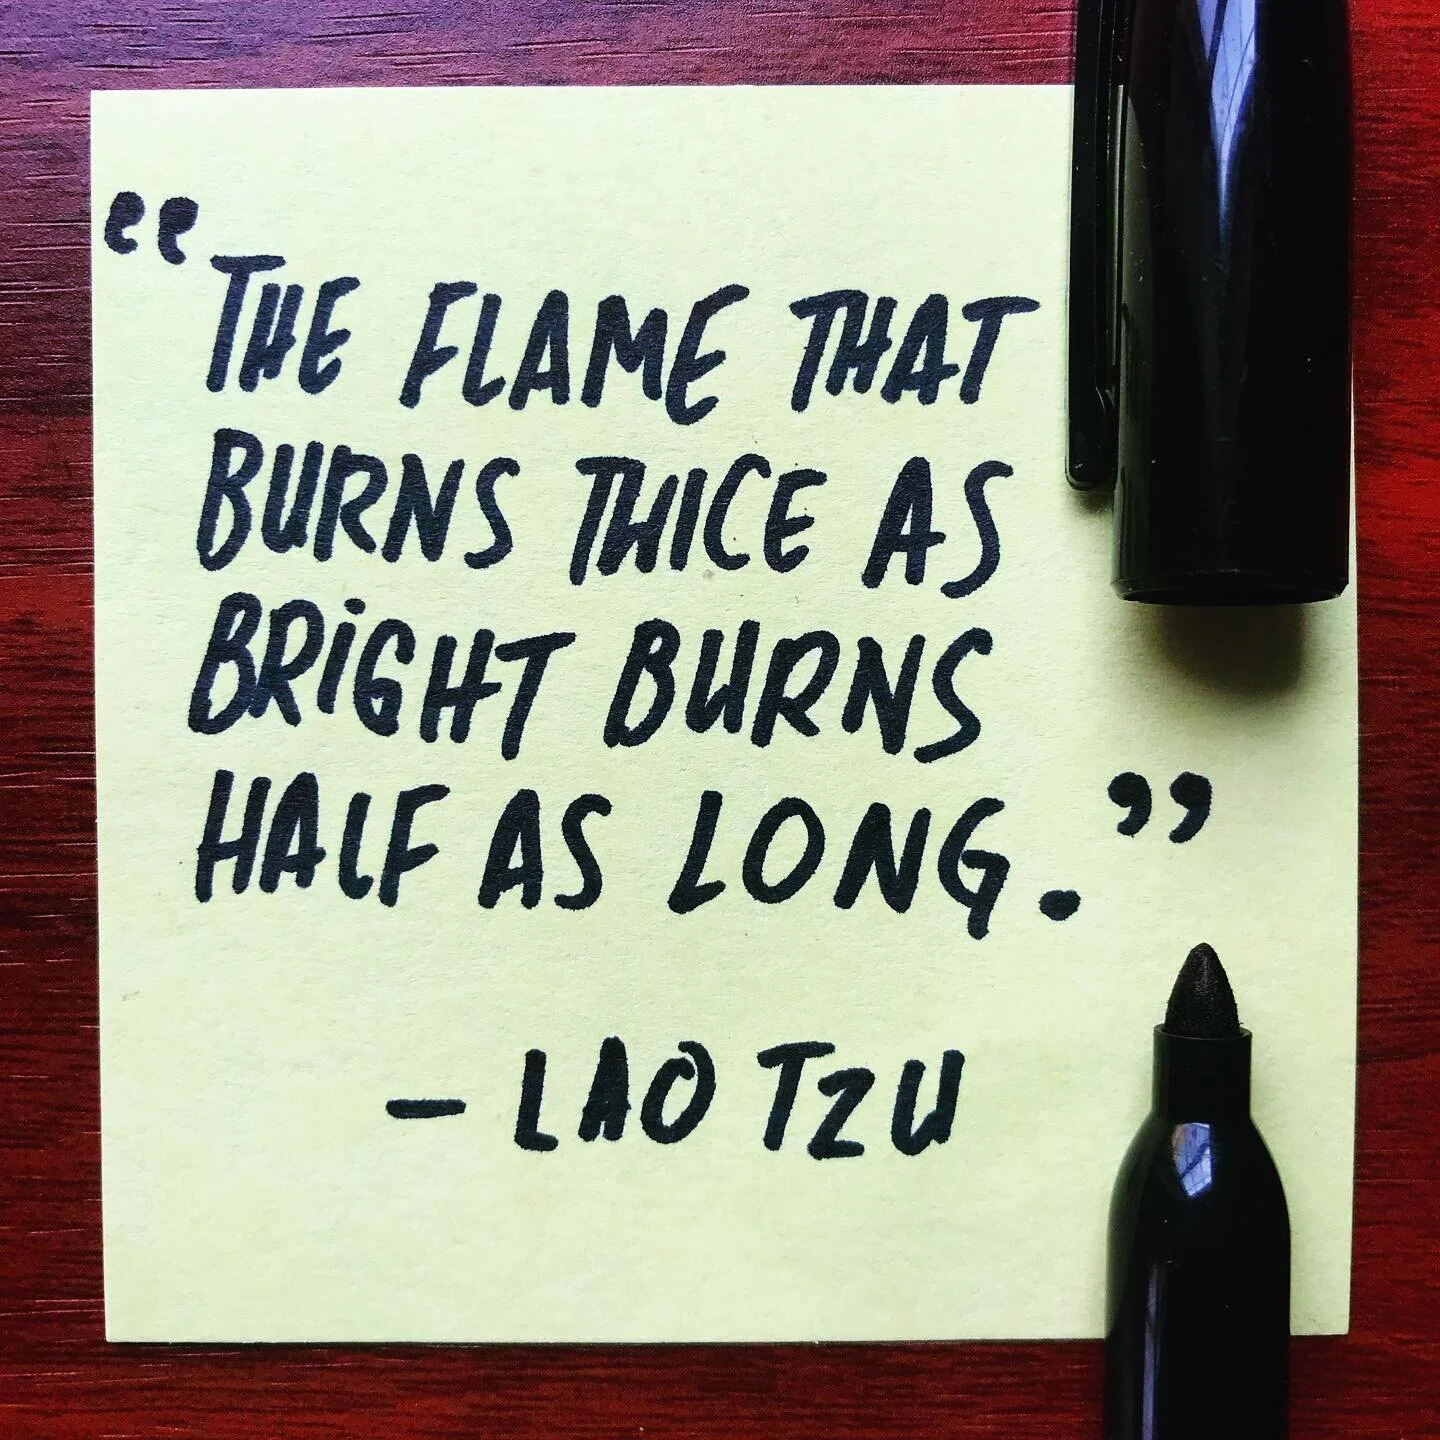 “THE FLAME THAT
BURNS TWICE AS
BRiGHT BURNS
HALF AS LONG.”
– LAO TZU